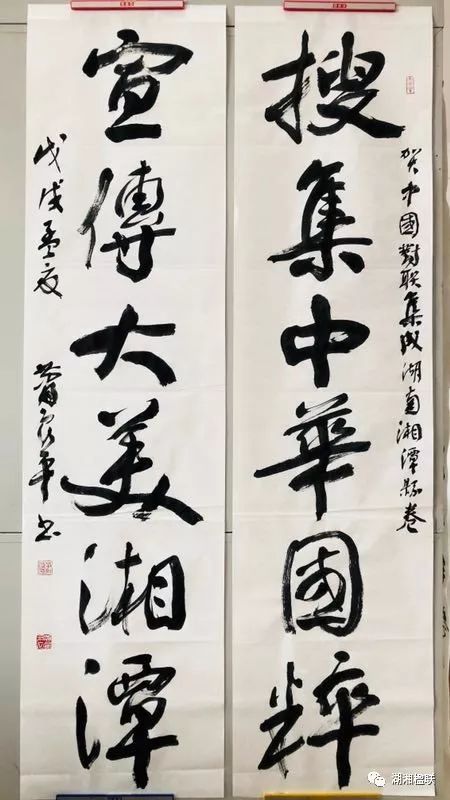 賀中國對联集成湖南湘潭縣卷
搜集中華國粹
宣傳大美湘潭
戊戌孟夏
蕭 平书
湖湘楹联